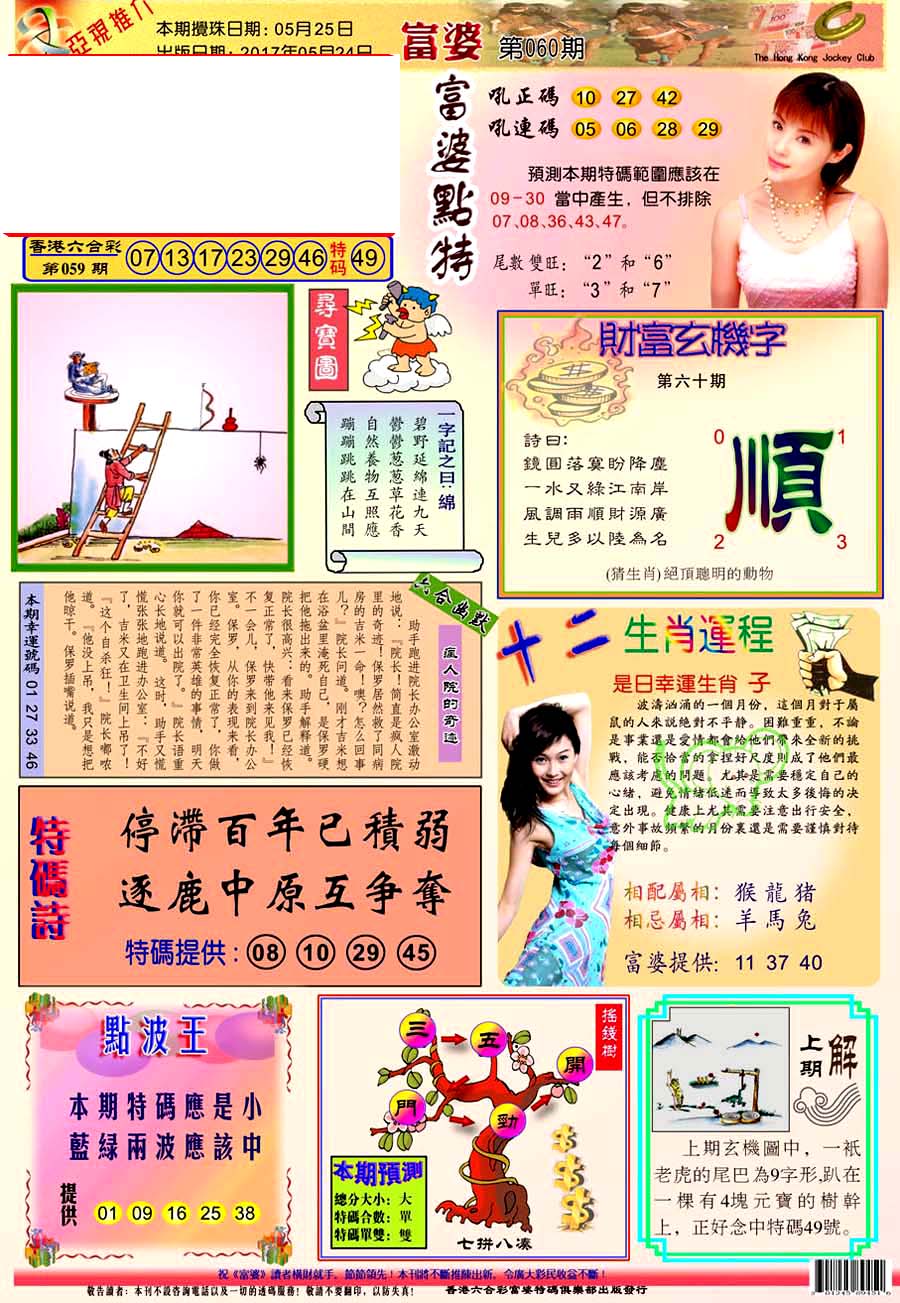 亞視推介
本期攪珠日期: 05月25日
出版日期: 2017年05月24日
富婆 第060期
The Hong Kong Jockey Club
富婆點特
吼正碼 10 27 42
吼連碼 05 06 28 29
預測本期特碼範圍應該在
09-30 當中產生, 但不排除
07、08、36、43、47。
尾數 雙旺: “2”和“6”
單旺: “3”和“7”
香港六合彩
第059 期
07 13 17 23 29 46 特码 49
尋寶圖
一字記之曰: 綿
碧野延綿連九天
鬱鬱蔥蔥草花香
自然養物互照應
蹦蹦跳跳在山間
財富玄機字
第六十期
詩曰:
鏡圓落寞盼降塵
一水又綠江南岸
風調雨順財源廣
生兒多以陸為名
0 1
順
2 3
(猜生肖)絕頂聰明的動物
本期幸運號碼 01 27 33 46
六合幽默
瘋人院的奇迹
助手跑进院长办公室激动
地说:『院长!简直是疯人院
里的奇迹!保罗居然救了同病
房的吉米一命!噢?怎么回事
儿?』院长问道。刚才吉米想
在浴盆里淹死自己,是保罗硬
把他拖出来的。助手解释道。
院长很高兴:看来保罗已经恢
复正常了,快带他来见我!
不一会儿,保罗来到院长办公
室。保罗,从你的表现来看,
你已经完全恢复正常了,你做
了一件非常英雄的事情,明天
你就可以出院了。』院长语重
心长地说道。这时,助手又慌
慌张张地跑进办公室:『不好
了,吉米又在卫生间上吊了!
『这个自杀狂!』院长嘟哝
道。『他没上吊,我只是想把
他晾干。保罗插嘴说道。
十二生肖運程
是日幸運生肖 子
波濤汹涌的一個月份,這個月對于屬
鼠的人來說絶對不平静。困難重重,不論
是事業還是愛情都會給他們帶來全新的挑
戰,能否恰當的拿捏好尺度則成了他們最
應該考慮的問題。尤其是需要穩定自己的
心緒,避免情緒低迷而導致太多後悔的决
定出現。健康上尤其需要注意出行安全,
意外事故頻繁的月份裏還是需要謹慎對待
每個細節。
相配屬相: 猴 龍 猪
相忌屬相: 羊 馬 兔
富婆提供: 11 37 40
特碼詩
停滯百年已積弱
逐鹿中原互爭奪
特碼提供: 08 10 29 45
點波王
本期特碼應是小
藍綠兩波應該中
提供 01 09 16 25 38
搖錢樹
三 五 開
門 勁
本期預測
總分大小: 大
特碼合數: 單
特碼單雙: 雙
七拼八凑
上期解
上期玄機圖中,一衹
老虎的尾巴為9字形,趴在
一棵有4塊元寶的樹幹
上,正好念中特碼49號。
祝《富婆》讀者橫財就手,節節領先!本刊將不斷推陳出新,令廣大彩民收益不斷!
敬告讀者:本刊不設咨詢電話以及一切的透碼服務!敬請不要翻印,以防失真!
香港六合彩富婆特碼俱樂部出版發行